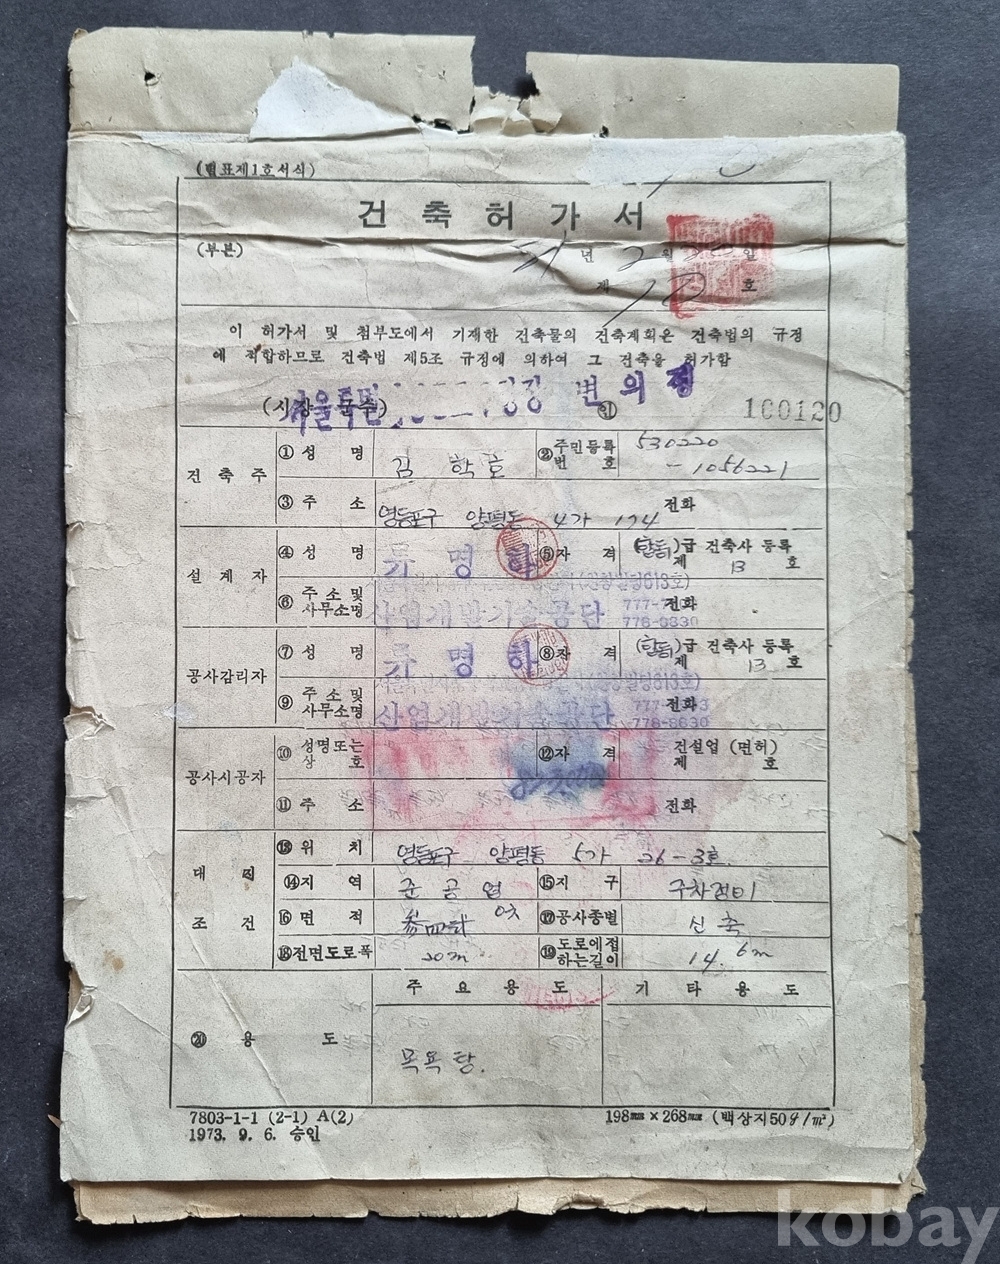 (별표제1호서식)
건축허가서
(부본)
년 2월 일
제 호
이 허가서 및 첨부도에서 기재한 건축물의 건축계획은 건축법의 규정
에 적합하므로 건축법 제5조 규정에 의하여 그 건축을 허가함
(시장 군수) 서울특별 청장 변의정 ㊞ 100120
건축주
①성 명 김학호 ②주민등록번 호 530220-1056221
③주 소 영등포구 양평동 4가 174 전화
설계자
④성 명 류명하 ⑤자 격 ( )급 건축사 등록 제 13 호
⑥주소 및 사무소명 산업개발기술공단 전화
776-8630
공사감리자
⑦성 명 류명하 ⑧자 격 ( )급 건축사 등록 제 13 호
⑨주소 및 사무소명 산업개발기술공단 전화
776-8630
공사시공자
⑩성명또는 상 호 ⑫자 격 건설업 (면허) 제 호
⑪주 소 전화
대지조건
⑬위 치 영등포구 양평동 5가 26-3호
⑭지 역 준공업 ⑮지 구 주차정비
⑯면 적 参四弐 ⑰공사종별 신축
⑱전면도로폭 20m ⑲도로에접하는길이 14.6m
⑳용 도
주요용도 기타용도
목욕탕.
7803-1-1 (2-1) A(2) 198㎜×268㎜ (백상지50g/㎡)
1973. 9. 6. 승인
kobay